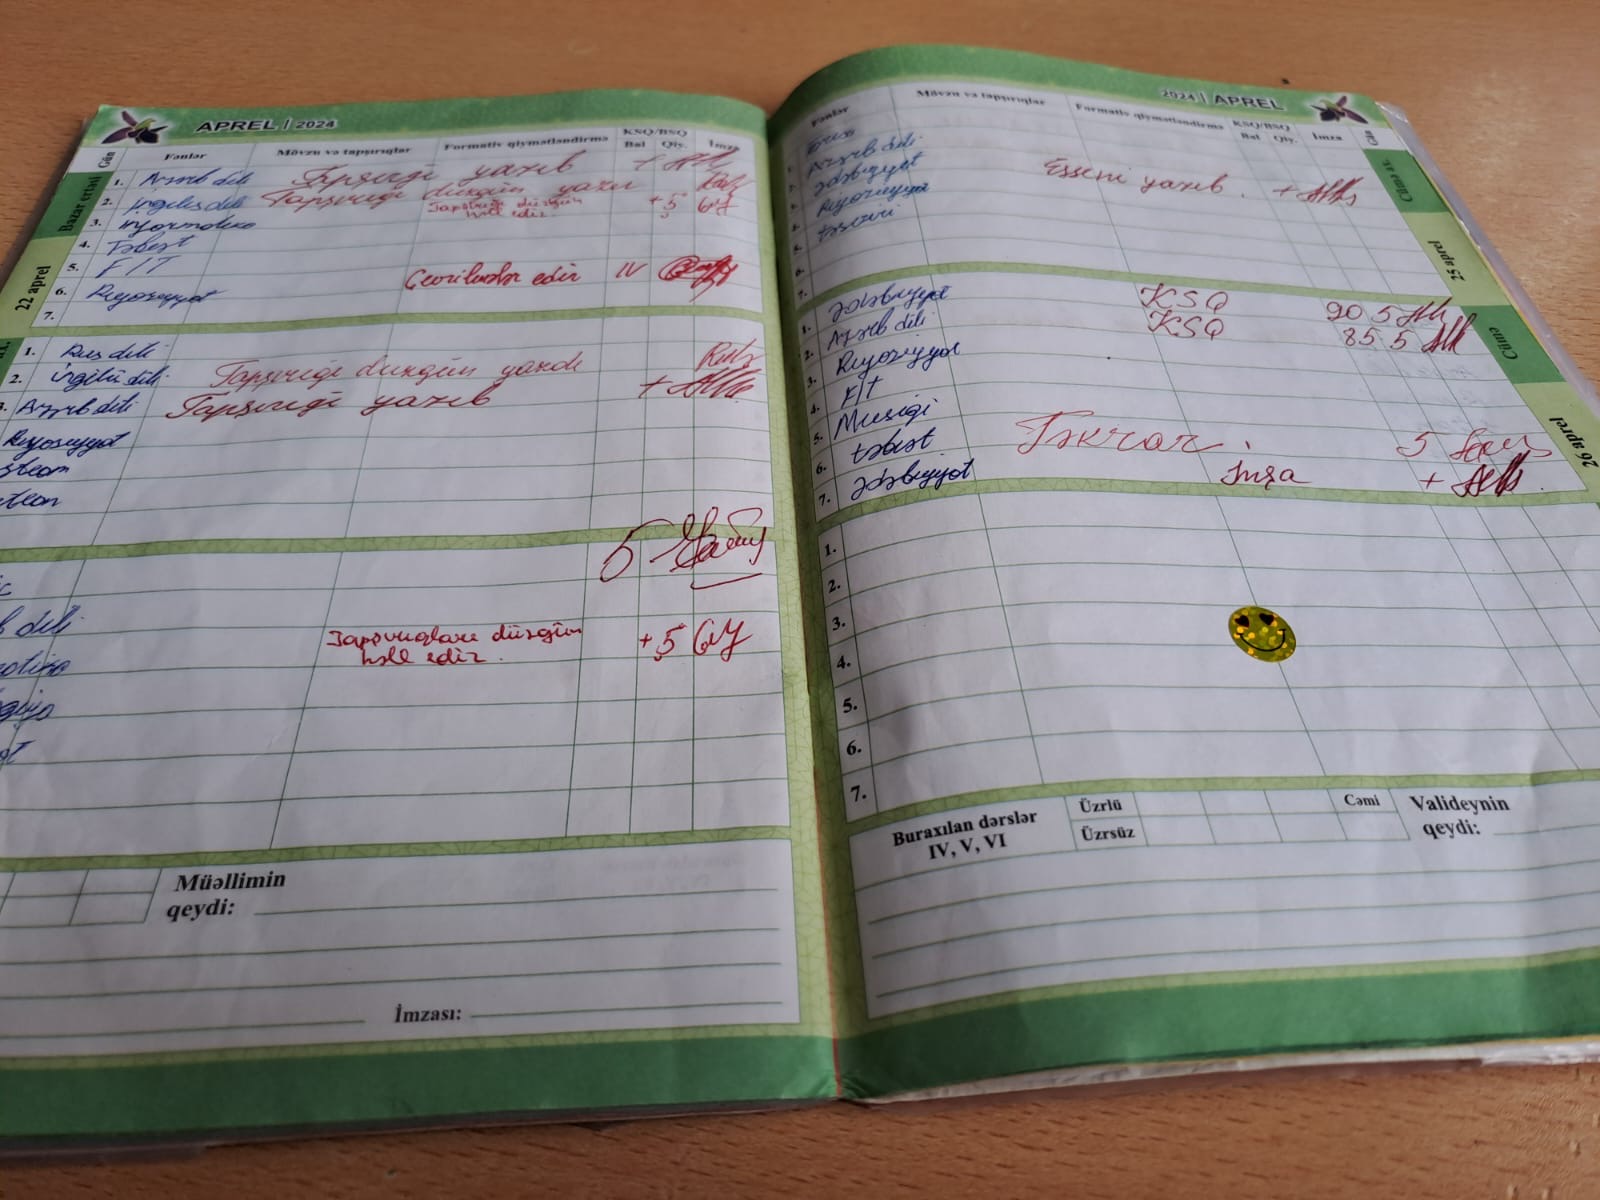 APREL | 2024
Gün Fənlər Mövzu və tapşırıqlar Formativ qiymətləndirmə KSQ/BSQ Bal Qiy. İmza
Bazar ertəsi
22 aprel
1. Azərb dili Tapşırığı yazıb +
2. İngilis dili Tapşırığı düzgün yazır
3. İnformatika Tapşırığı düzgün həll edir. +5
4. Təbiət
5. F/T Çevrilmələr edir IV
6. Riyaziyyat
7.
1. Rus dili
2. İngilis dili Tapşırığı düzgün yazdı
Azərb dili Tapşırığı yazıb +
Riyaziyyat
steam
steam
5
b dili
Tapşırıqları düzgün həll edir. +5
Müəllimin qeydi:
İmzası:
2024 | APREL
Fənlər Mövzu və tapşırıqlar Formativ qiymətləndirmə KSQ/BSQ Bal Qiy. İmza Gün
Cümə ax.
25 aprel
Azərb dili
Ədəbiyyat Esseni yazıb. +
Riyaziyyat
təsviri
6.
7.
Cümə
26 aprel
1. Ədəbiyyat KSQ 90 5
2. Azərb dili KSQ 85 5
3. Riyaziyyat
4. F/T
5. Musiqi
6. təbiət Təkrar. 5
7. Ədəbiyyat İnşa +
1.
2.
3.
4.
5.
6.
7.
Buraxılan dərslər IV, V, VI
Üzrlü
Üzrsüz
Cəmi
Valideynin qeydi: